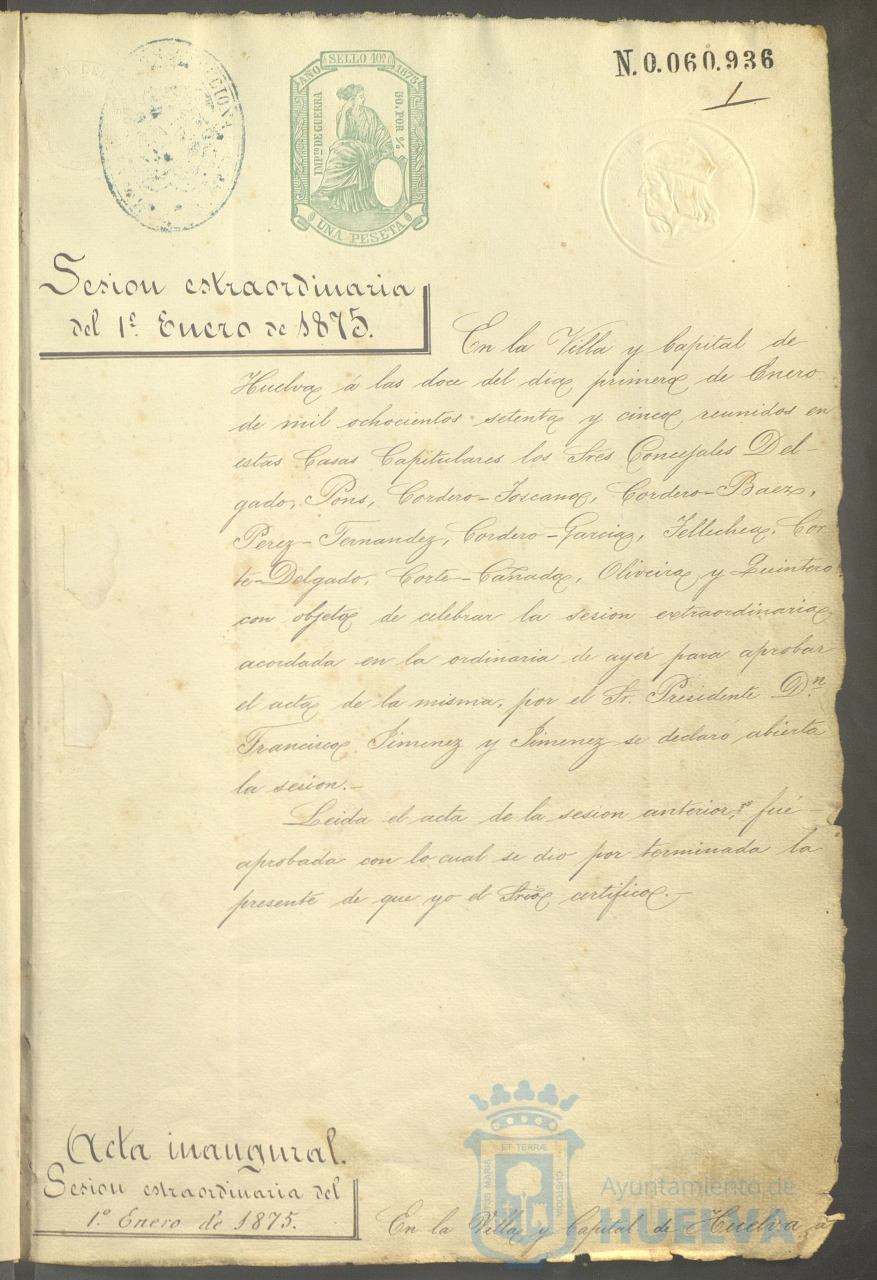 N.0.060.936
1
AÑO SELLO 10º 1875
IMPTO DE GUERRA
50 POR %
UNA PESETA
Sesion estraordinaria
del 1º Enero de 1875.
En la Villa y Capital de
Huelva á las doce del dia primero de Enero
de mil ochocientos setenta y cinco reunidos en
estas Casas Capitulares los Sres Concejales Del-
gado, Pons, Cordero-Toscano, Cordero-Baez,
Perez-Fernandez, Cordero-Garcia, Tellechea, Cor-
te-Delgado, Corte-Cañada, Oliveira y Quintero
con objeto de celebrar la sesion extraordinaria
acordada en la ordinaria de ayer para aprobar
el acta de la misma, por el Sr. Presidente Dn
Francisco Jimenez y Jimenez se declaró abierta
la sesion.-
Leida el acta de la sesion anterior, fué
aprobada con lo cual se dio por terminada la
presente de que yo el Srio certifico.-
Acta inaugural.
Sesion estraordinaria del
1º Enero de 1875.
En la Villa y Capital de Huelva á
PORTUS MARIS ET TERRÆ CUSTODIA
Ayuntamiento de
HUELVA